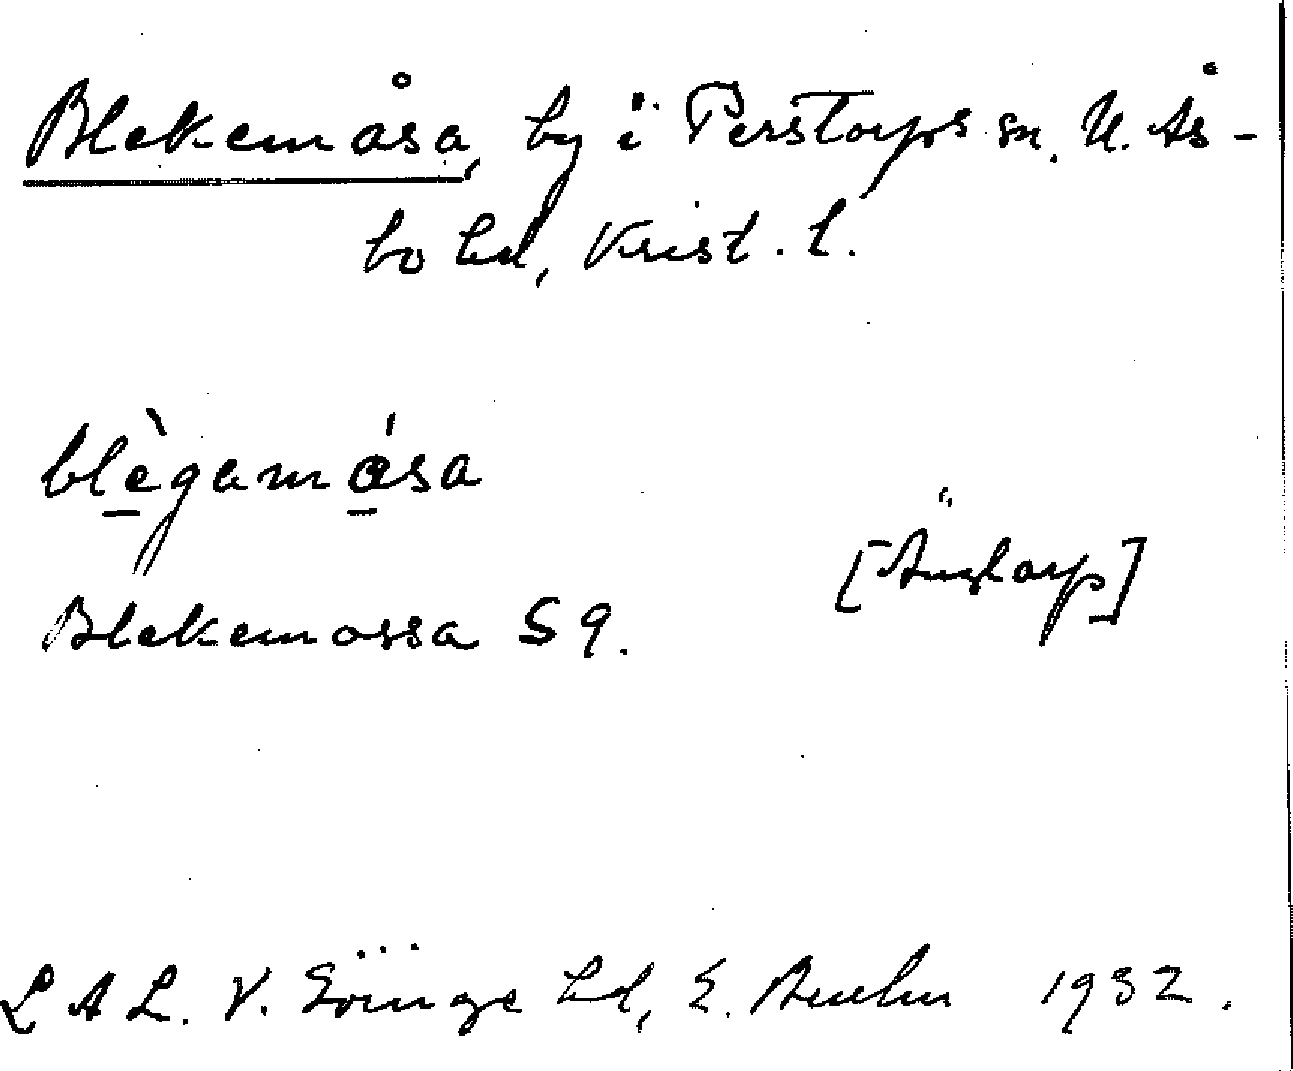 Blekemåsa, by i Perstorps sn. N. Ås-
bo hd, Krist. l.
blègamása
Blekemossa S 9.
[Ängtarp]
L A L. V. Göinge hd, E. 1932.